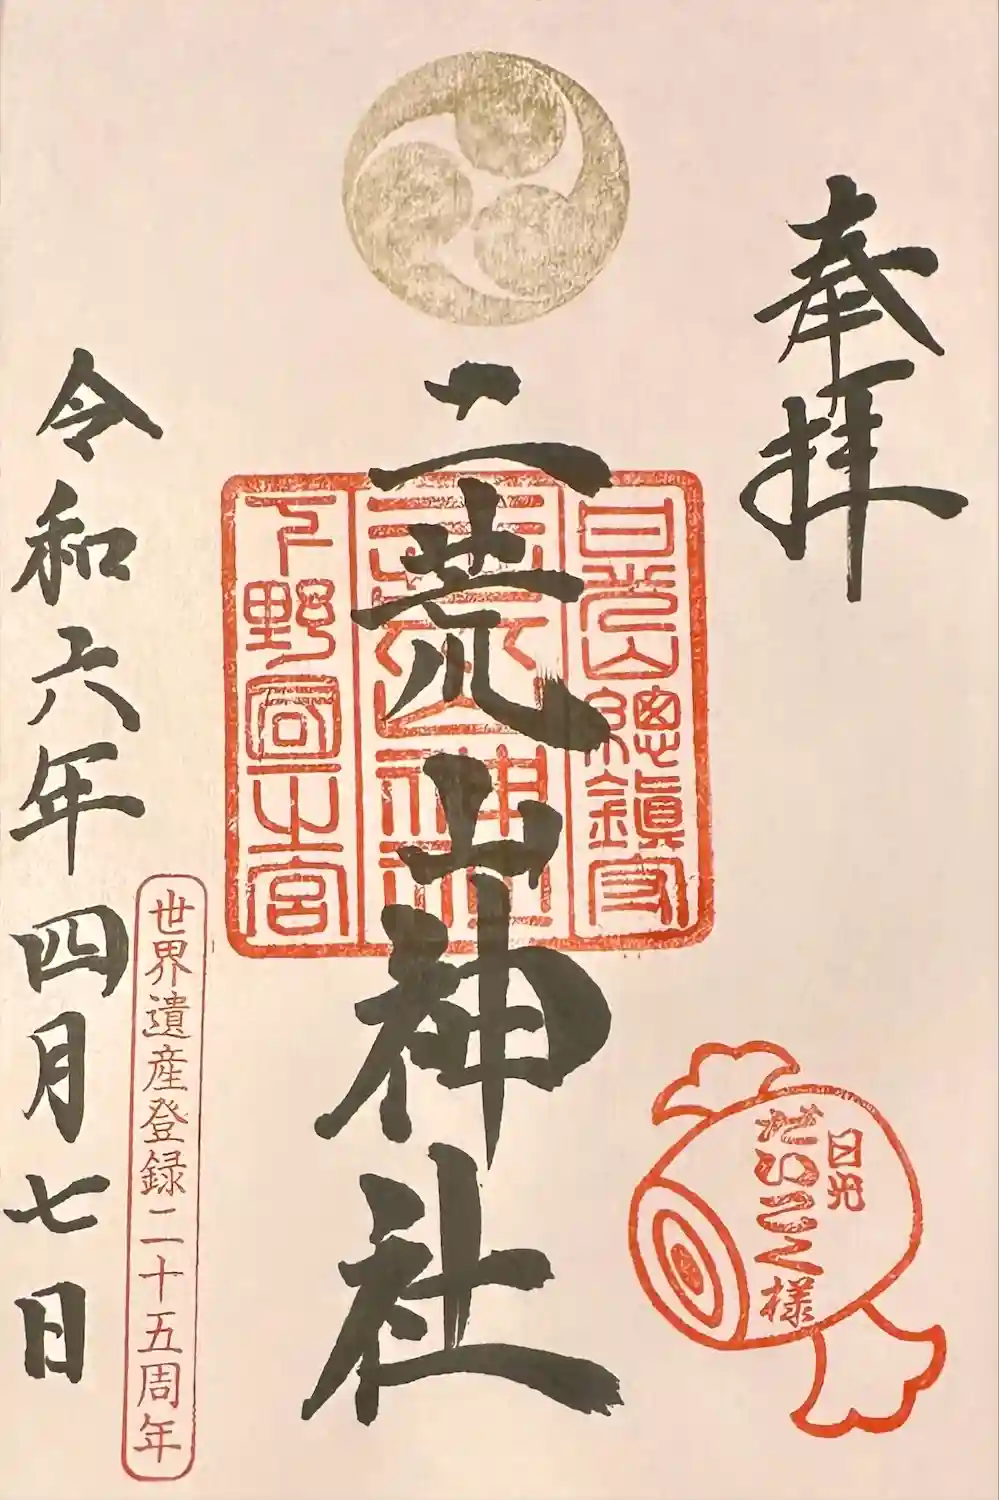 奉拝
日光山總鎮守
二荒山神社
二荒山神社
下野國一之宮
日光
だいこく様
世界遺産登録二十五周年
令和六年四月七日